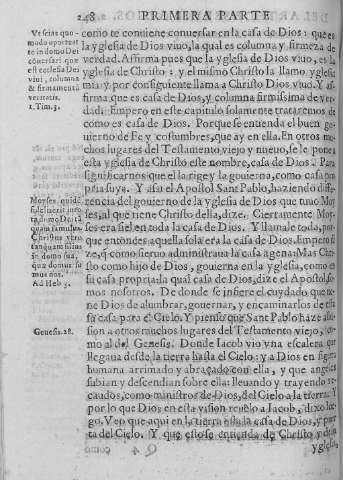 248. PRIMERA PARTE
Vt scias quo-
modo oporteat
te in domo Dei
cõuersari quæ
est ecclesia Dei
viui, columna
& firmamentũ
veritatis.
1. Tim. 3.
Moyses quidẽ
famulus.
Christus vero
tanquam filius
in domo sua,
quæ domus su
mus nos.
Ad Heb 3.
Genesis. 28.
como te conuiene conuersar en la casa de Dios: que es
la yglesia de Dios viuo, la qual es columna y firmeza de
verdad. Affirma pues que la yglesia de Dios viuo, es la
yglesia de Christo: y el mismo Christo la llamo yglesia
mia: y por consiguiente llama a Christo Dios viuo. Y af-
firma que es casa de Dios, y columna firmissima de ver-
dad: Empero en este capitulo solamente trataremos de
como es casa de Dios. Porque se entienda el buen go-
uierno de Fe y costumbres, que ay en ella. En otros mu-
chos lugares del Testamento viejo y nueuo, se le pone a
esta yglesia de Christo este nombre, casa de Dios. Para
significarnos que el la rige y la gouierna, como casa pro-
pria suya. Y assi el Apostol Sant Pablo, haziendo diffe-
rencia del gouierno de la yglesia de Dios que tuuo Moy-
ses, al que tiene Christo della, dize. Ciertamente Moy-
ses era fiel en toda la casa de Dios. Y llamale toda, por-
que entonces aquella sola era la casa de Dios. Empero di
ze, q̃ como sieruo administraua la casa agena: Mas Chri-
sto como hijo de Dios, gouierna en la yglesia, como en
su casa propria: la qual casa de Dios, dize el Apostol, so
mos nosotros. De donde se infiere el cuydado que tie-
ne Dios de alumbrar, gouernar, y encaminarlos de esta
su casa para el Cielo. Y pienso que Sant Pablo haze alu-
sion a otros muchos lugares del Testamento viejo, co-
mo al del Genesis. Donde Iacob vio vna escalera que
llegaua desde la tierra hasta el Cielo: y a Dios en figura
humana arrimado y abraçado con ella, y que angeles
subian y descendian sobre ella: lleuando y trayendo re-
caudos, como ministros de Dios, del Cielo a la tierra: Y
por lo que Dios en esta vision reuelo a Iacob, dixo lue-
go. Veo que aqui en la tierra esta la casa de Dios, y puer
ta del Cielo. Y que estos se entienda de Christo y de su
Q 4 yglesia,